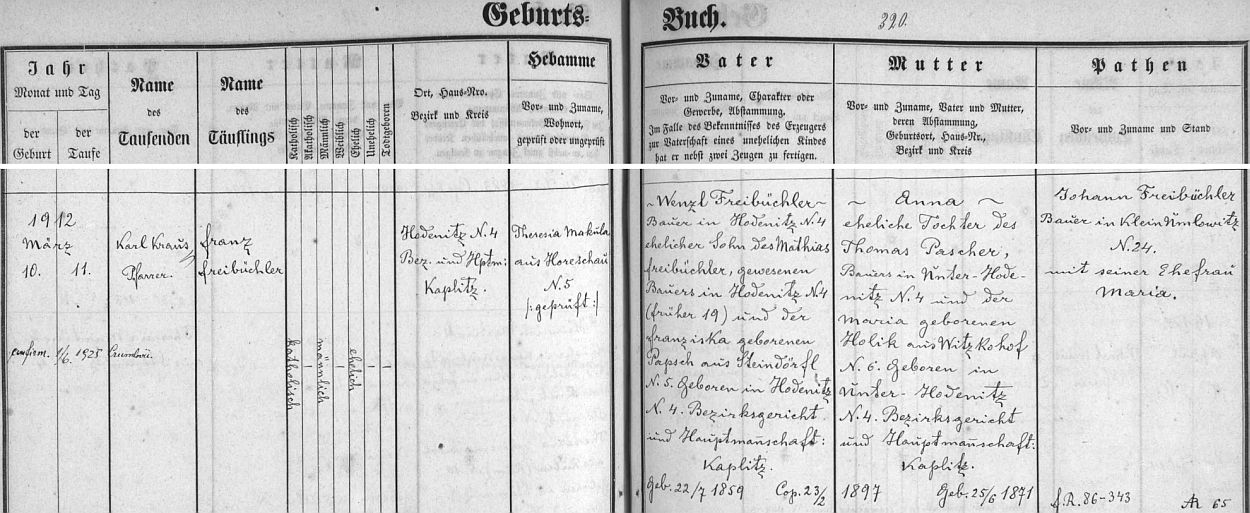 Geburts-
Buch.
320.
Jahr
Monat und Tag
der
Geburt
der
Taufe
Name
des
Taufenden
Name
des
Täuflings
Katholisch
Akatholisch
Männlich
Weiblich
Ehelich
Unehelich
Todtgeboren
Ort, Haus-Nro.
Bezirk und Kreis
Hebamme
Vor- und Zuname,
Wohnort,
geprüft oder ungeprüft
Vater
Vor- und Zuname, Charakter oder
Gewerbe, Abstammung.
Im Falle des Bekenntnisses des Erzeugers
zur Vaterschaft eines unehelichen Kindes
hat er nebst zwei Zeugen zu fertigen.
Mutter
Vor- und Zuname, Vater und Mutter,
deren Abstammung,
Geburtsort, Haus-Nr.
Bezirk und Kreis
Pathen
Vor- und Zuname und Stand
1912
März
10. 11.
confirm. 1925
Karl Kraus,
Pfarrer.
Franz
Freibüchler
katholisch
männlich
ehelich
Hodenitz N. 4
Bez. und Hptm:
Kaplitz.
Theresia Makula
aus Horeschau
N. 5
/:geprüft:/
~ Wenzl Freibüchler ~
Bauer in Hodenitz N. 4
ehelicher Sohn des Mathias
Freibüchler, gewesenen
Bauers in Hodenitz N. 4
(früher 19) und der
Franziska geborenen
Papsch aus Steindörfl
N. 5. Geboren in Hodenitz
N. 4. Bezirksgericht
und Hauptmannschaft:
Kaplitz.
Geb. 22/7 1859 Cop. 23/2
~ Anna ~
eheliche Tochter des
Thomas Pascher,
Bauers in Unter-Hode-
nitz N. 4 und der
Maria geborenen
Holik aus Witzkohof
N. 6. Geboren in
Unter-Hodenitz
N. 4. Bezirksgericht
und Hauptmannschaft:
Kaplitz.
1897 Geb. 25/6 1871
Johann Freibüchler
Bauer in Klein Umlowitz
N. 24.
mit seiner Ehefrau
Maria.
f. R. 86-343
AR 65